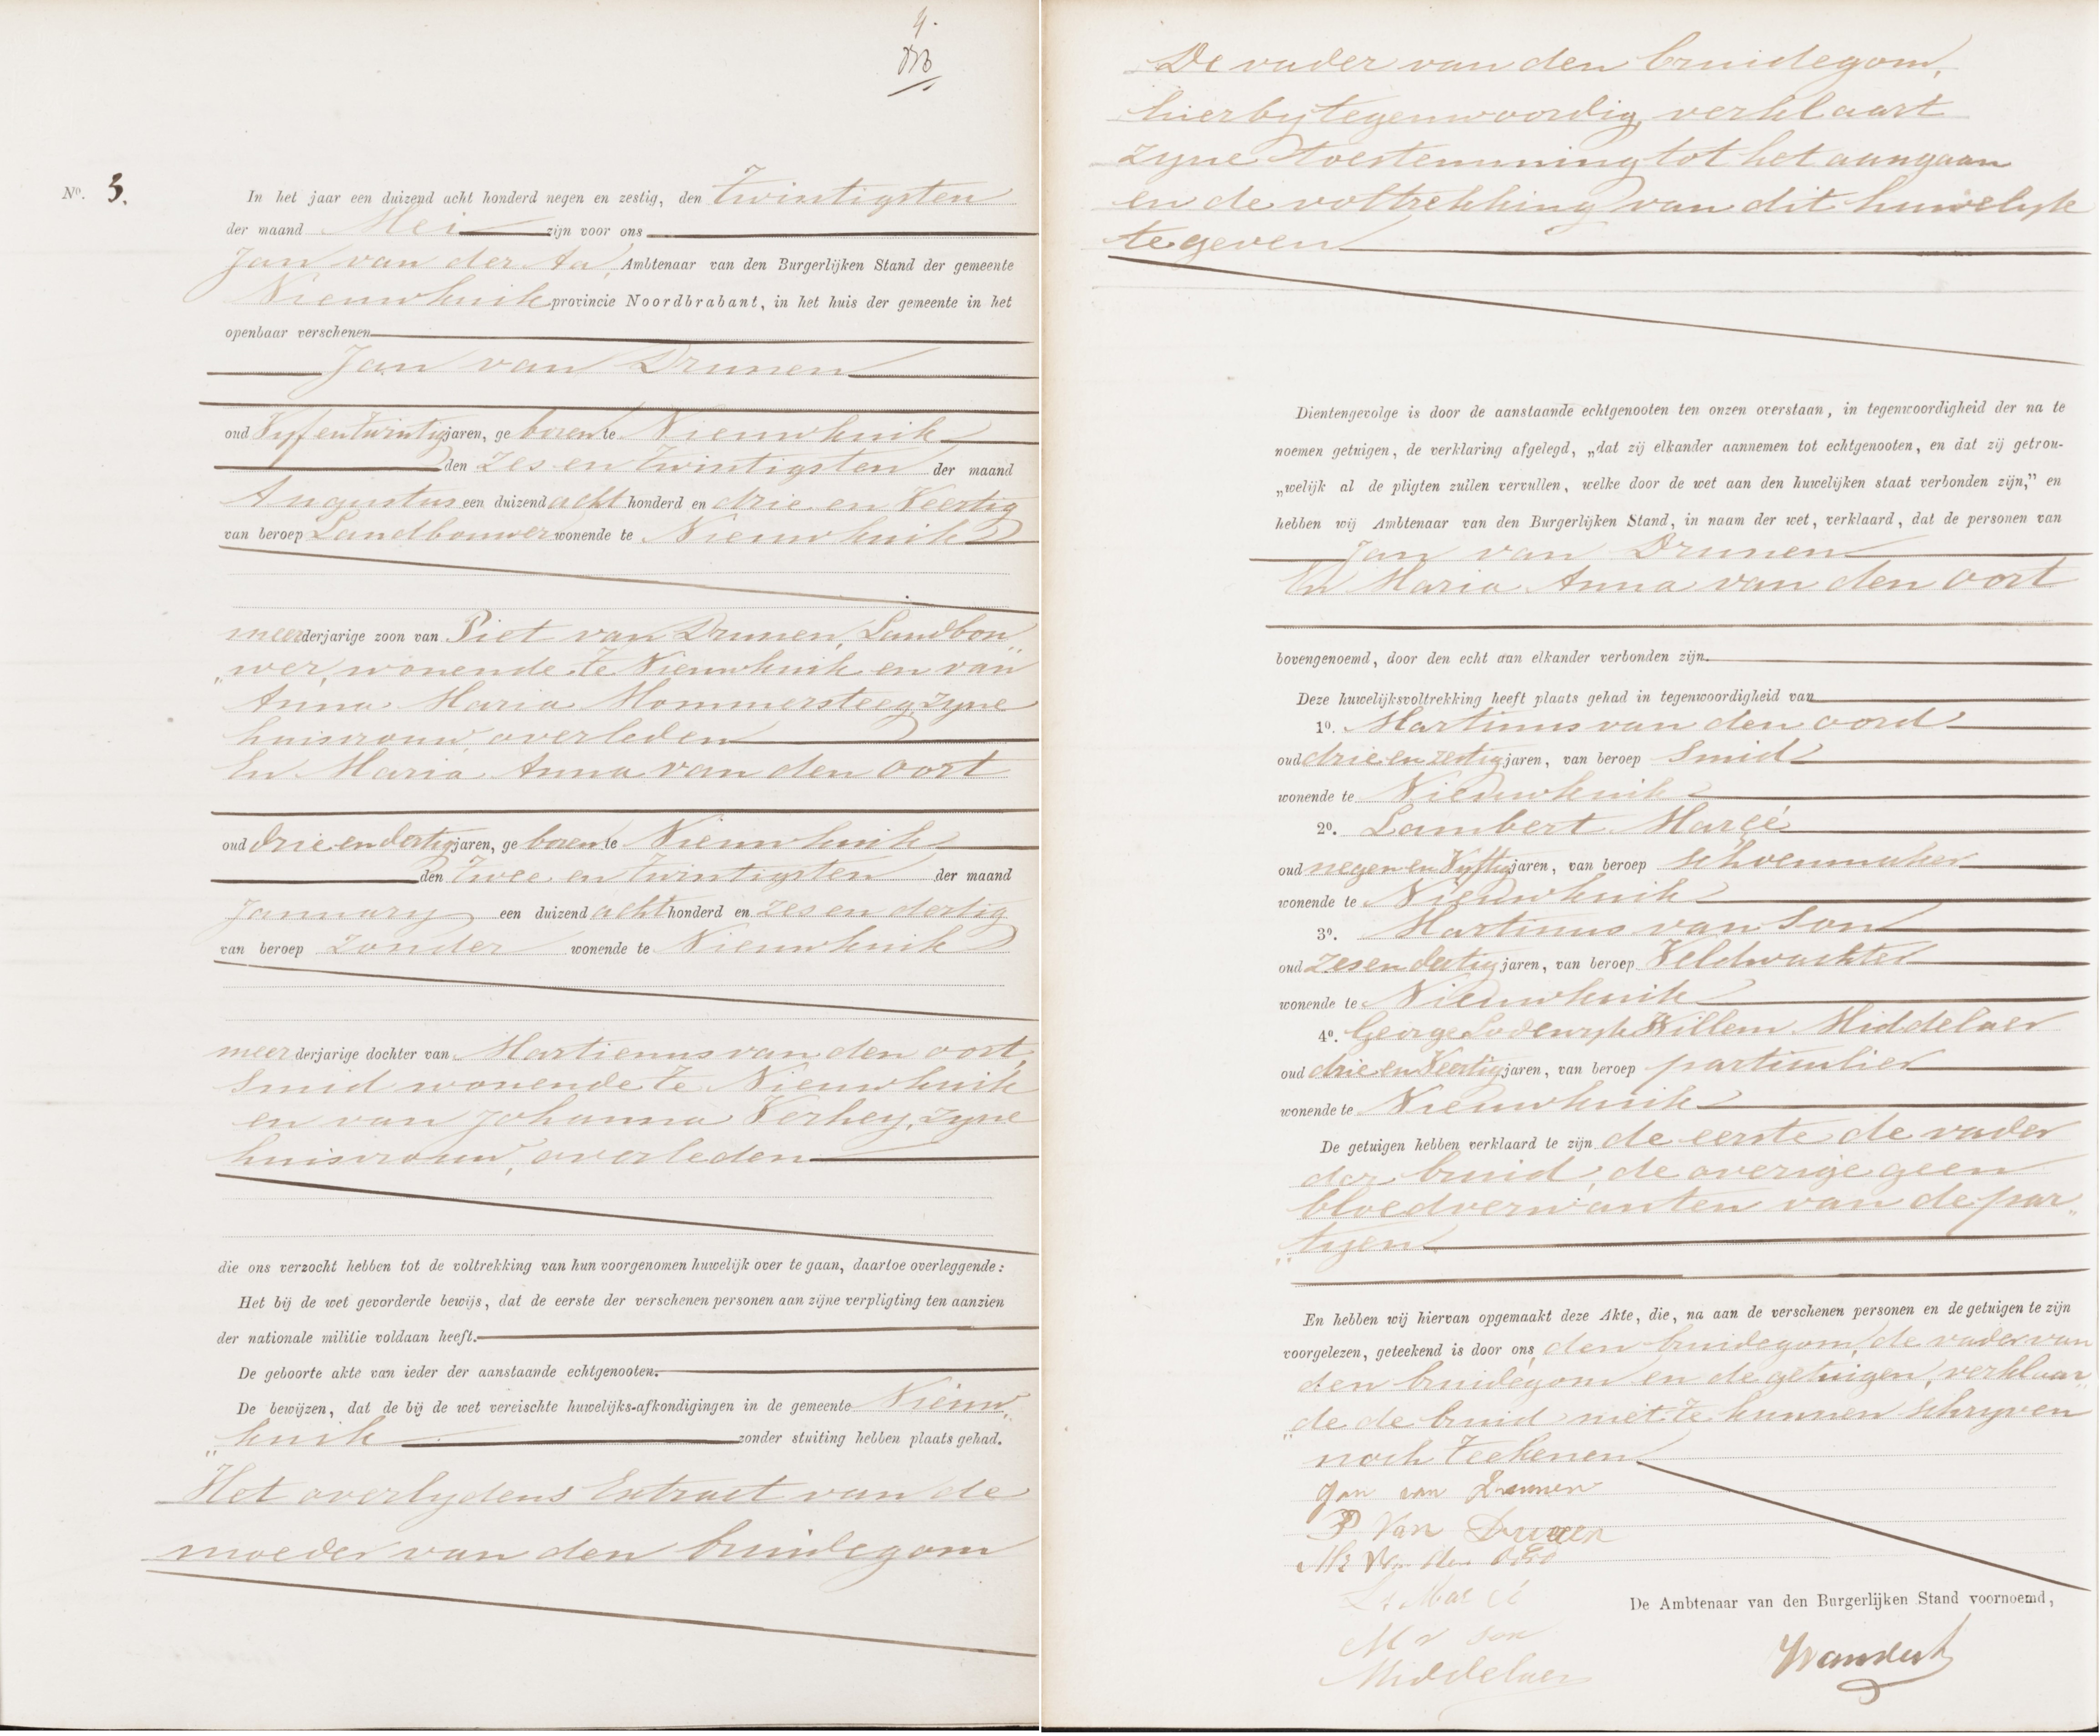 4.
Nº. 3.
In het jaar een duizend acht honderd negen en zestig, den twintigsten
der maand Mei zijn voor ons
Jan van der Aa, Ambtenaar van den Burgerlijken Stand der gemeente
Nieuwkuik provincie Noordbrabant, in het huis der gemeente in het
openbaar verschenen
Jan van Drunen
oud Vyf en twintig jaren, geboren te Nieuwkuik
den zes en twintigsten der maand
Augustus een duizend acht honderd en drie en Veertig
van beroep Landbouwer wonende te Nieuwkuik
meerderjarige zoon van Piet van Drunen, Landbou„
„wer, wonende te Nieuwkuik en van
Anna Maria Mommersteeg zyne
huisvrouw overleden
En Maria Anna van den oort
oud drie en dertig jaren, geboren te Nieuwkuik
den twee en twintigsten der maand
January een duizend acht honderd en zes en dertig
van beroep zonder wonende te Nieuwkuik
meerderjarige dochter van Martienus van den oort,
Smid wonende te Nieuwkuik
en van Johanna Verhey, zyne
huisvrouw, overleden
die ons verzocht hebben tot de voltrekking van hun voorgenomen huwelijk over te gaan, daartoe overleggende:
Het bij de wet gevorderde bewijs, dat de eerste der verschenen personen aan zijne verpligting ten aanzien
der nationale militie voldaan heeft.
De geboorte akte van ieder der aanstaande echtgenooten.
De bewijzen, dat de bij de wet vereischte huwelijks-afkondigingen in de gemeente Nieuw„
„kuik zonder stuiting hebben plaats gehad.
Het overlydens Extract van de
moeder van den bruidegom
De vader van den bruidegom,
hierby tegenwoordig, verklaart
zyne toestemming tot het aangaan
en de voltrekking van dit huwelyk
te geven
Dientengevolge is door de aanstaande echtgenooten ten onzen overstaan, in tegenwoordigheid der na te
noemen getuigen, de verklaring afgelegd, „dat zij elkander aannemen tot echtgenooten, en dat zij getrou-
„welijk al de pligten zullen vervullen, welke door de wet aan den huwelijken staat verbonden zijn,” en
hebben wij Ambtenaar van den Burgerlijken Stand, in naam der wet, verklaard, dat de personen van
Jan van Drunen
En Maria Anna van den oort
bovengenoemd, door den echt aan elkander verbonden zijn.
Deze huwelijksvoltrekking heeft plaats gehad in tegenwoordigheid van
1º. Martinus van den oord
oud drie en zestig jaren, van beroep Smid
wonende te Nieuwkuik
2º. Lambert Marcé
oud negen en Vyftig jaren, van beroep schoenmaker
wonende te Nieuwkuik
3º. Martinus van Son
oud zes en dertig jaren, van beroep Veldwachter
wonende te Nieuwkuik
4º. George Lodewyk Willem Middelaer
oud drie en Veertig jaren, van beroep particulier
wonende te Nieuwkuik
De getuigen hebben verklaard te zijn de eerste de vader
der bruid, de overige geen
bloedverwanten van de par„
„tyen
En hebben wij hiervan opgemaakt deze Akte, die, na aan de verschenen personen en de getuigen te zijn
voorgelezen, geteekend is door ons, den bruidegom, de vader van
den bruidegom en de getuigen, verklaar„
„de de bruid niet te kunnen schryven
noch teekenen
Jan van Drunen
P Van Drunen
Mt Van den Oord
Lt Marcé
M v Son
Middelaer
De Ambtenaar van den Burgerlijken Stand voornoemd,